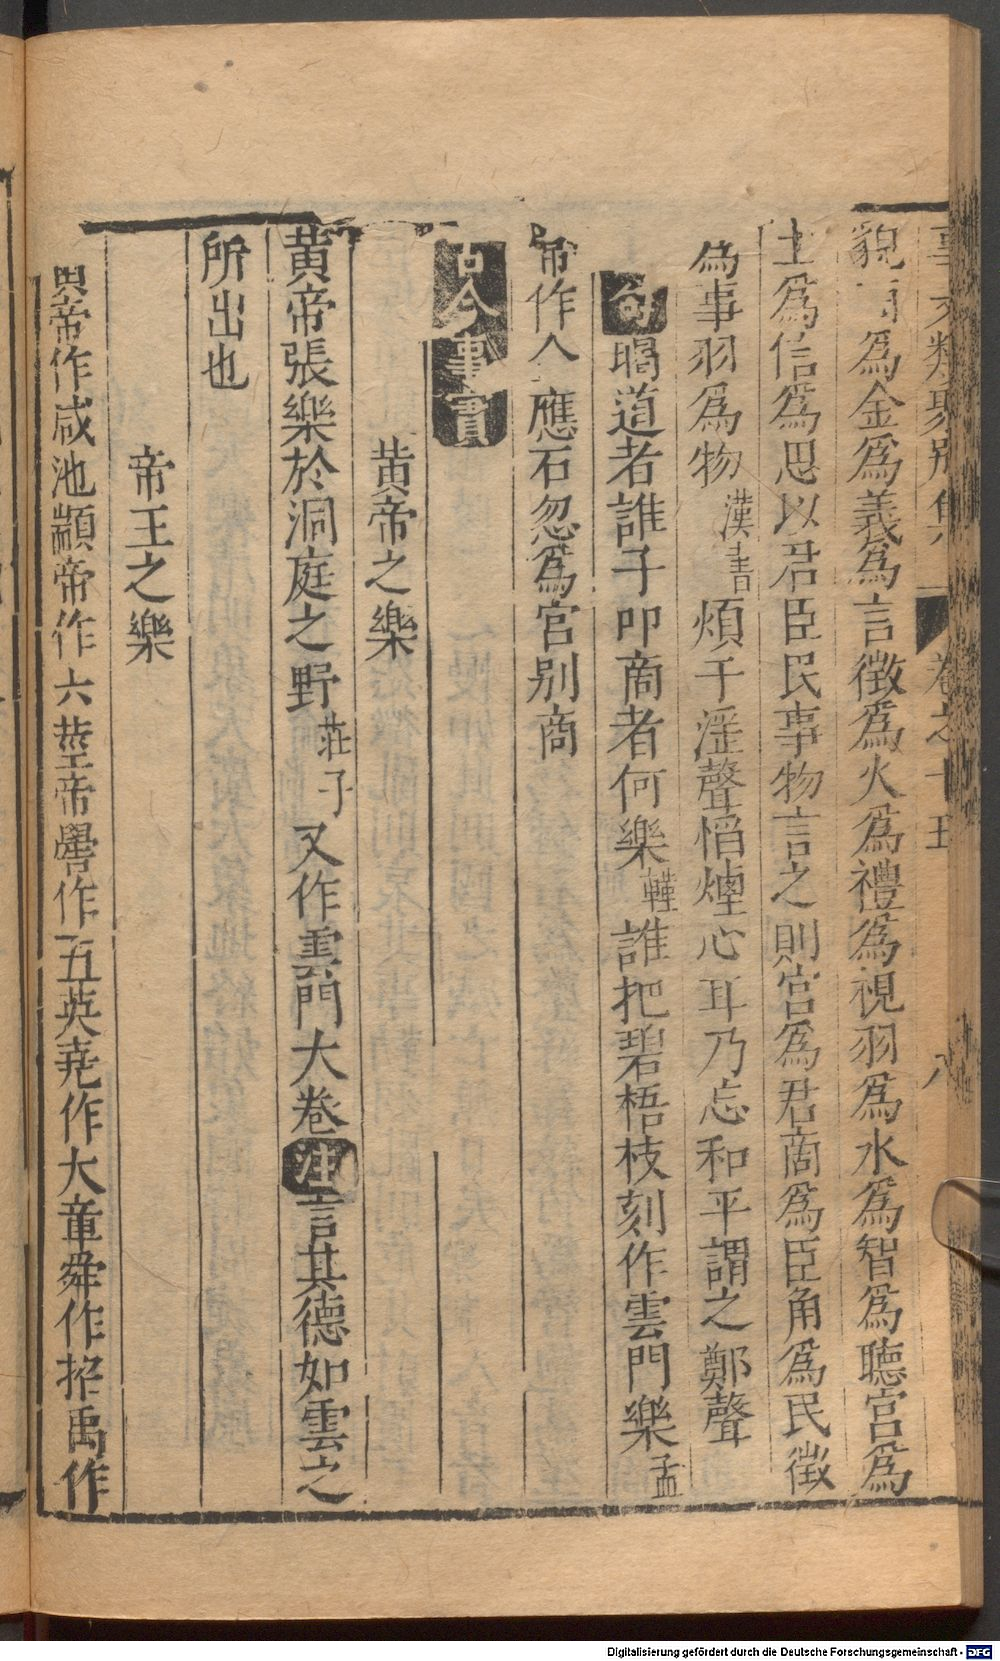 事文類聚別集 卷之十五 八
貌商爲金爲義爲言徵爲火爲禮爲視羽爲水爲智爲聽宮爲
土爲信爲思以君臣民事物言之則宮爲君商爲臣角爲民徵
爲事羽爲物漢書煩手淫聲慆煙心耳乃忘和平謂之鄭聲
句 暍道者誰子叩商者何樂韓誰把碧梧枝刻作雲門樂孟
常作人應石忽爲宮別商
古今事實
黄帝之樂
黄帝張樂於洞庭之野莊子又作雲門大卷注言其德如雲之
所出也
帝王之樂
黄帝作咸池顓帝作六莖帝嚳作五英堯作大章舜作招禹作
Digitalisierung gefördert durch die Deutsche Forschungsgemeinschaft - DFG